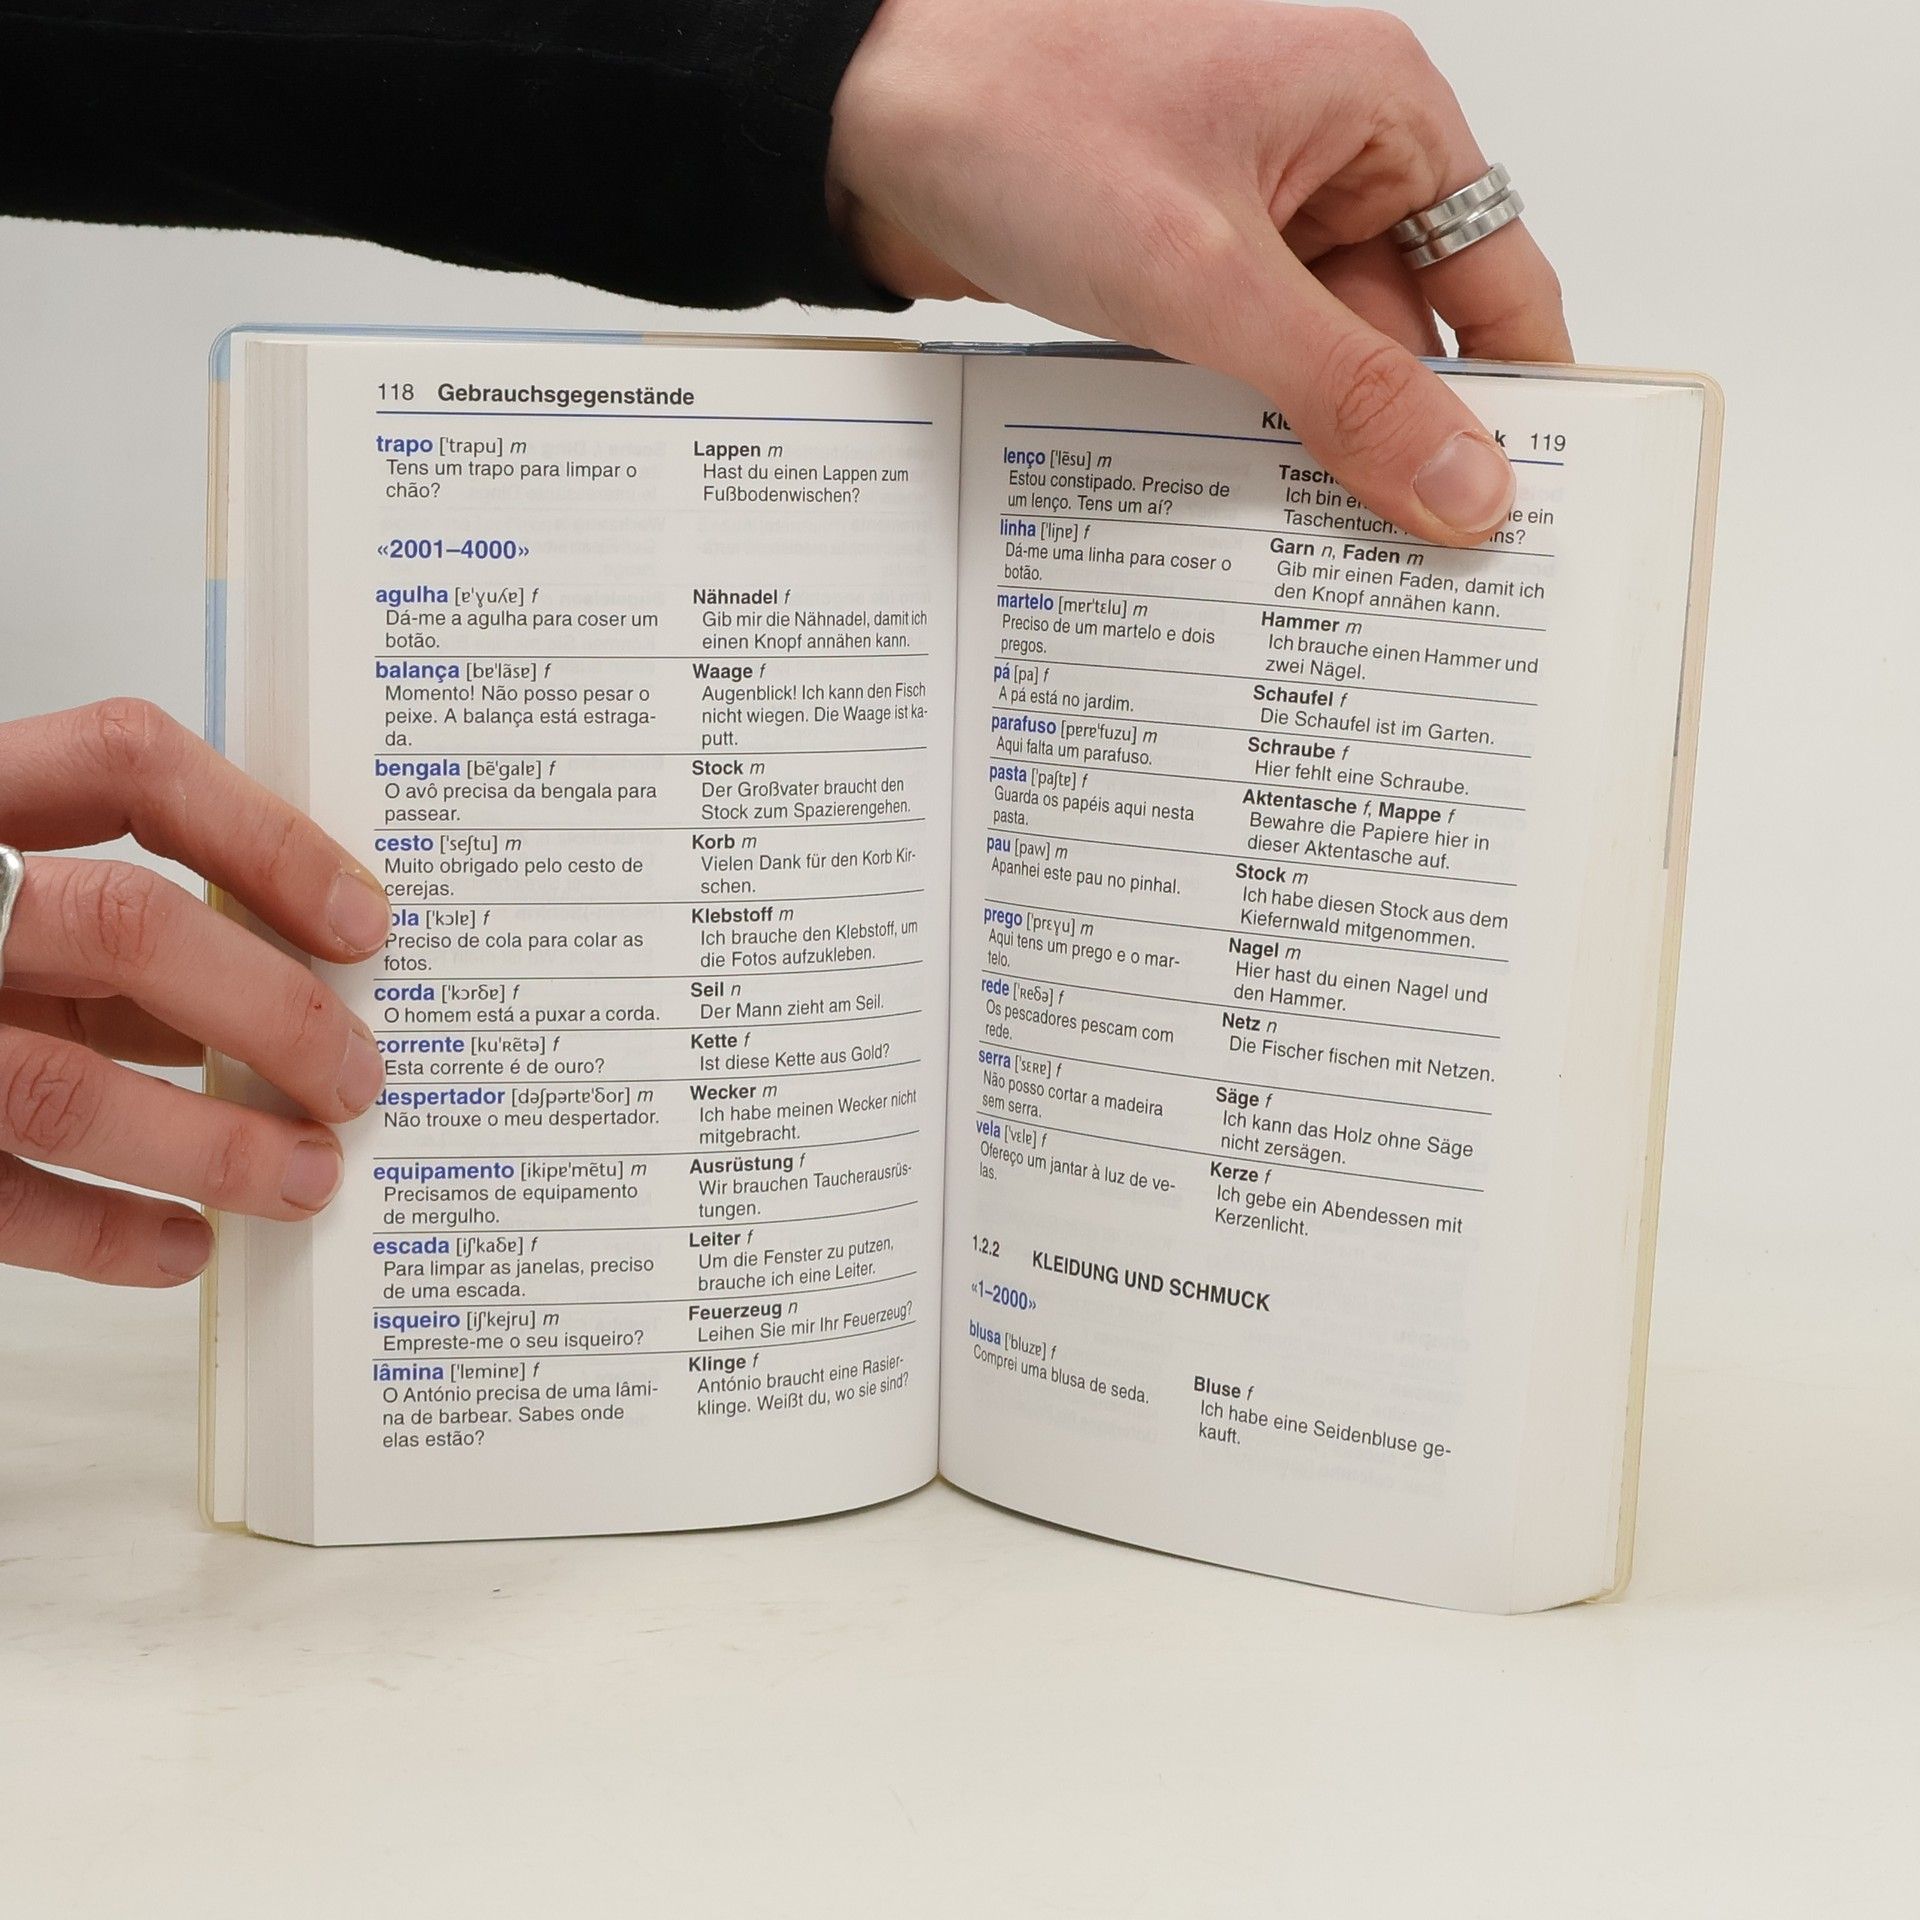 118 Gebrauchsgegenstände
trapo ['trapu] m
Tens um trapo para limpar o
chão?
Lappen m
Hast du einen Lappen zum
Fußbodenwischen?
«2001–4000»
agulha [ɐ'ɣuʎɐ] f
Dá-me a agulha para coser um
botão.
Nähnadel f
Gib mir die Nähnadel, damit ich
einen Knopf annähen kann.
balança [bɐ'lɐ̃sɐ] f
Momento! Não posso pesar o
peixe. A balança está estraga-
da.
Waage f
Augenblick! Ich kann den Fisch
nicht wiegen. Die Waage ist ka-
putt.
bengala [bẽ'galɐ] f
O avô precisa da bengala para
passear.
Stock m
Der Großvater braucht den
Stock zum Spazierengehen.
cesto ['seʃtu] m
Muito obrigado pelo cesto de
cerejas.
Korb m
Vielen Dank für den Korb Kir-
schen.
ola ['kɔlɐ] f
Preciso de cola para colar as
fotos.
Klebstoff m
Ich brauche den Klebstoff, um
die Fotos aufzukleben.
corda ['kɔrðɐ] f
O homem está a puxar a corda.
Seil n
Der Mann zieht am Seil.
corrente [ku'ʀẽtə] f
Esta corrente é de ouro?
Kette f
Ist diese Kette aus Gold?
despertador [dəʃpərtɐ'ðor] m
Não trouxe o meu despertador.
Wecker m
Ich habe meinen Wecker nicht
mitgebracht.
equipamento [ikipɐ'mẽtu] m
Precisamos de equipamento
de mergulho.
Ausrüstung f
Wir brauchen Taucherausrüs-
tungen.
escada [iʃ'kaðɐ] f
Para limpar as janelas, preciso
de uma escada.
Leiter f
Um die Fenster zu putzen,
brauche ich eine Leiter.
isqueiro [iʃ'kejru] m
Empreste-me o seu isqueiro?
Feuerzeug n
Leihen Sie mir Ihr Feuerzeug?
lâmina ['lɐminɐ] f
O António precisa de uma lâmi-
na de barbear. Sabes onde
elas estão?
Klinge f
António braucht eine Rasier-
klinge. Weißt du, wo sie sind?
119
lenço ['lẽsu] m
Estou constipado. Preciso de
um lenço. Tens um aí?
Tasch
Ich bin e ein
Taschentuch. ins?
linha ['liɲɐ] f
Dá-me uma linha para coser o
botão.
Garn n, Faden m
Gib mir einen Faden, damit ich
den Knopf annähen kann.
martelo [mɐr'tɛlu] m
Preciso de um martelo e dois
pregos.
Hammer m
Ich brauche einen Hammer und
zwei Nägel.
pá [pa] f
A pá está no jardim.
Schaufel f
Die Schaufel ist im Garten.
parafuso [pɐrɐ'fuzu] m
Aqui falta um parafuso.
Schraube f
Hier fehlt eine Schraube.
pasta ['paʃtɐ] f
Guarda os papéis aqui nesta
pasta.
Aktentasche f, Mappe f
Bewahre die Papiere hier in
dieser Aktentasche auf.
pau [paw] m
Apanhei este pau no pinhal.
Stock m
Ich habe diesen Stock aus dem
Kiefernwald mitgenommen.
prego ['prɛɣu] m
Aqui tens um prego e o mar-
telo.
Nagel m
Hier hast du einen Nagel und
den Hammer.
rede ['ʀeðə] f
Os pescadores pescam com
rede.
Netz n
Die Fischer fischen mit Netzen.
serra ['sɛʀɐ] f
Não posso cortar a madeira
sem serra.
Säge f
Ich kann das Holz ohne Säge
nicht zersägen.
vela ['vɛlɐ] f
Ofereço um jantar à luz de ve-
las.
Kerze f
Ich gebe ein Abendessen mit
Kerzenlicht.
1.2.2 KLEIDUNG UND SCHMUCK
«1–2000»
blusa ['bluzɐ] f
Comprei uma blusa de seda.
Bluse f
Ich habe eine Seidenbluse ge-
kauft.